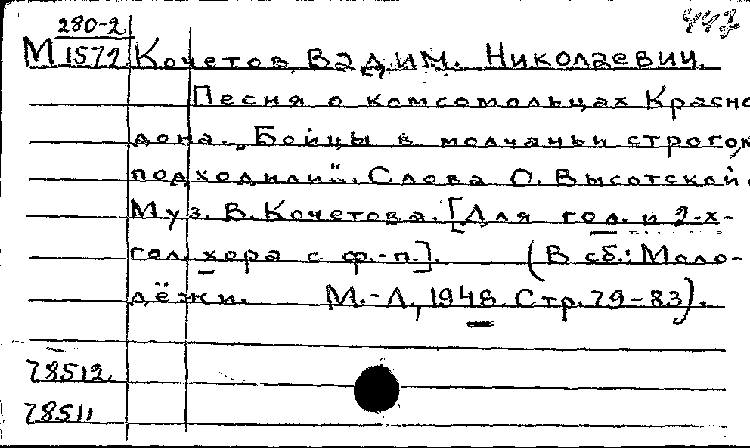 280-2 443
М1572 Кочетов Вадим. Николаевич.
Песня о комсомольцах Красно
дона. „Бойцы в молчаньи строгом
подходили". Слова О. Высотской
Муз. В. Кочетова. [Для гол. и 2-х-
гол. хора с ф.-п.]. (В сб.: Моло-
дёжи. М.-Л., 1948. Стр. 79-83).
78512.
78511